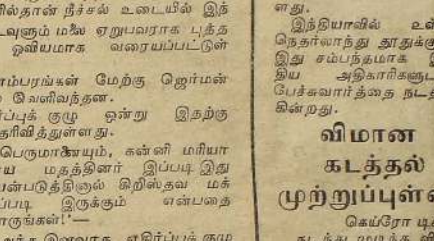 நீச்சல் உடையில் இந்
டவுளும் மலை ஏறுபவராக புத்த
ஓவியமாக வரையப்பட்டுள்
ளம்பரங்கள் மேற்கு ஜெர்மன்
வெளிவந்தன.
ர்ப்புக் குழு ஒன்று இதற்கு
தரிவித்துள்ளது.
பெருமானையும், கன்னி மரியா
ய மதத்தினர் இப்படி இது
பன்படுத்தினால் கிறிஸ்தவ மக்
ப்படி இருக்கும் என்பதை
ாருங்கள்!'—
எதிர்ப்புக் குழு
ளது.
இந்தியாவில் உள்
நெதர்லாந்து தூதுக்கு
இது சம்பந்தமாக இ
திய அதிகாரிகளுட
பேச்சுவார்த்தை நடத்
கின்றது.
விமான
கடத்தல்
முற்றுப்புள்ள
கெய்ரோ டி